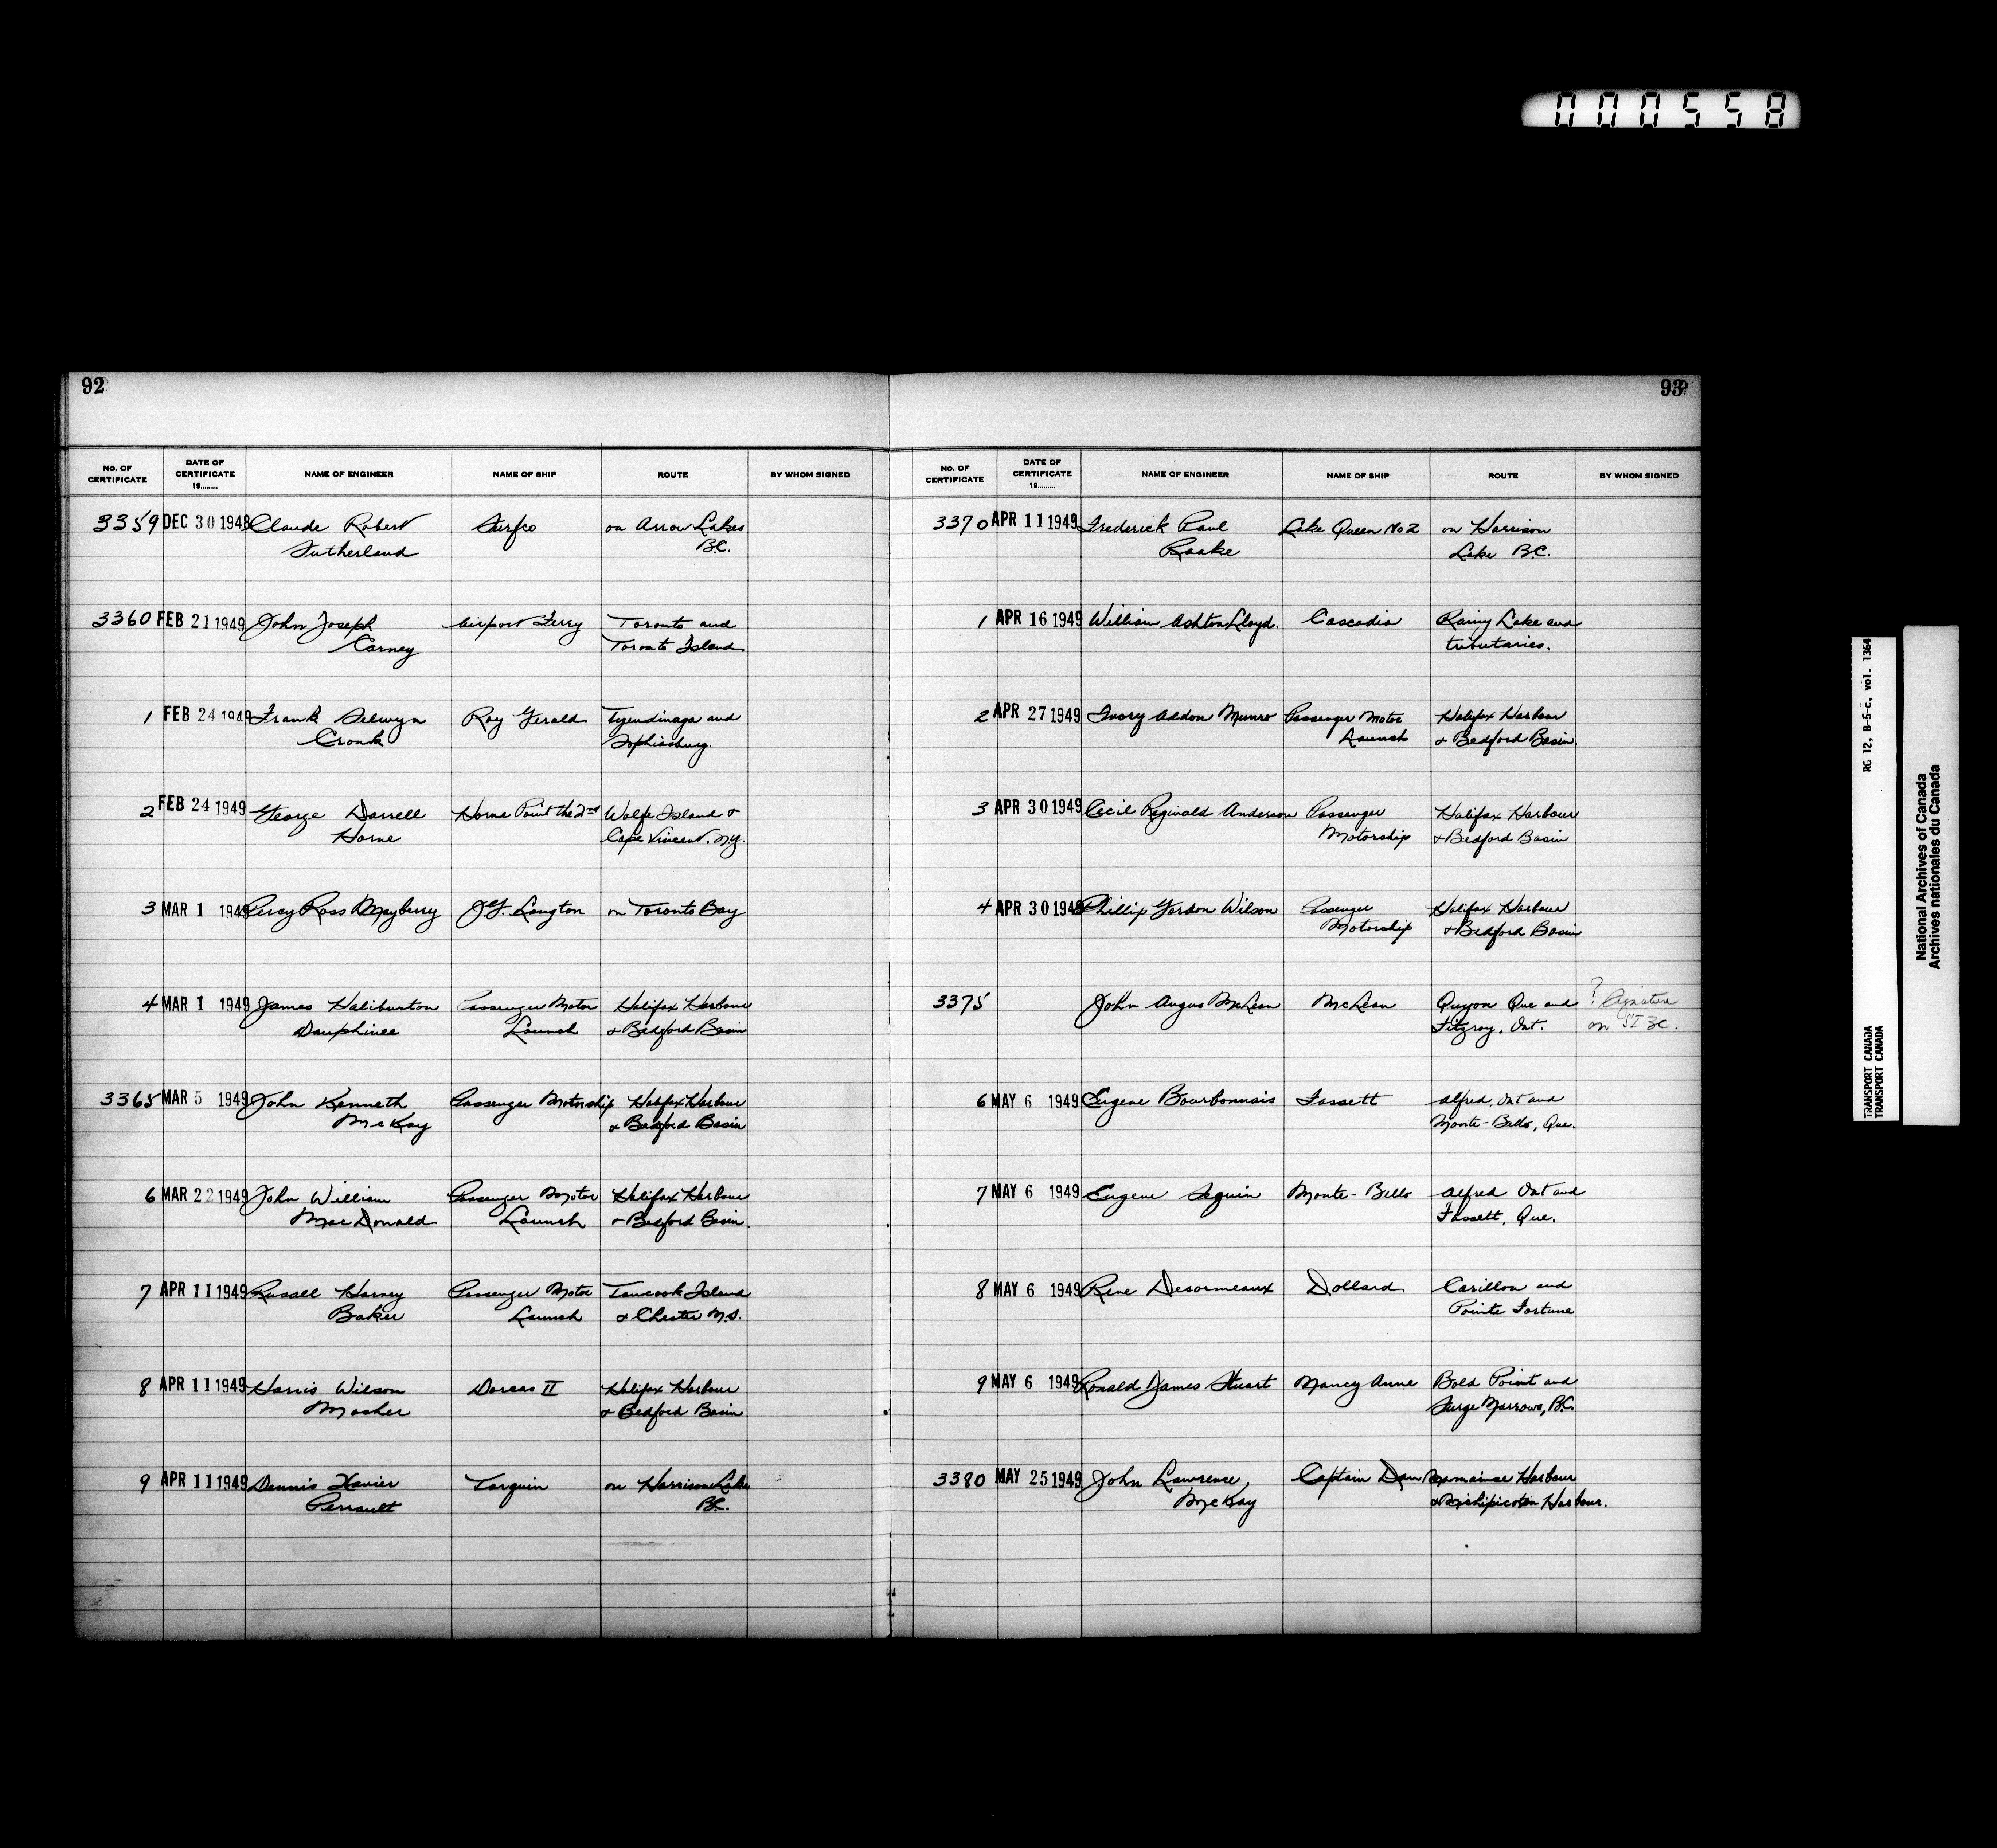 000558
92
No. OF CERTIFICATE DATE OF CERTIFICATE 19........ NAME OF ENGINEER NAME OF SHIP ROUTE BY WHOM SIGNED
3359 DEC 30 1948 Claude Robert on Arrow Lakes
Sutherland B.C.
3360 FEB 21 1949 John Joseph Airport Ferry Toronto and
Carney Toronto Island
1 FEB 24 1949 Frank Selwyn Roy Gerald Tyendinaga and
Cronk Sophiasburg.
2 FEB 24 1949 George Darrell Horne Point the 2nd Wolfe Island &
Horne Cape Vincent. N.Y.
3 MAR 1 1949 Percy Ross Mayberry J.G. Langton on Toronto Bay
4 MAR 1 1949 James Haliburton Passenger Motor Halifax Harbour
Dauphinee Launch & Bedford Basin
3365 MAR 5 1949 John Kenneth Passenger Motorship Halifax Harbour
McKay & Bedford Basin
6 MAR 22 1949 John William Passenger Motor Halifax Harbour
MacDonald Launch & Bedford Basin
7 APR 11 1949 Russell Harney Passenger Motor Tancook Island
Baker Launch & Chester N.S.
8 APR 11 1949 Harris Wilson Dorcas II Halifax Harbour
Mosher & Bedford Basin
9 APR 11 1949 Dennis Xavier Tarquin on Harrison Lake
Perrault B.C.
93
No. OF CERTIFICATE DATE OF CERTIFICATE 19........ NAME OF ENGINEER NAME OF SHIP ROUTE BY WHOM SIGNED
3370 APR 11 1949 Frederick Paul Lake Queen No 2 on Harrison
Raake Lake B.C.
1 APR 16 1949 William Ashton Lloyd. Cascadia Rainy Lake and
tributaries.
2 APR 27 1949 Ivory Addon Munro Passenger Motor Halifax Harbour
Launch & Bedford Basin.
3 APR 30 1949 Cecil Reginald Anderson Passenger Halifax Harbour
Motorship & Bedford Basin
4 APR 30 1949 Phillip Gordon Wilson Passenger Halifax Harbour
Motorship & Bedford Basin
3375 John Angus McLean McLean Quyon Que and ? Signature
Fitzroy, Ont. on
6 MAY 6 1949 Eugene Bourbonnais Fassett Alfred, Ont and
Monte-Bello, Que.
7 MAY 6 1949 Eugene Seguin Monte-Bello Alfred Ont and
Fassett, Que.
8 MAY 6 1949 Rene Desormeaux Dollard Carillon and
Pointe Fortune
9 MAY 6 1949 Ronald James Stuart Nancy Anne Bold Point and
Surge Narrows, B.C.
3380 MAY 25 1949 John Lawrence Captain Dan Mamainse Harbour
McKay & Michipicoten Harbour.
RG 12, B-5-C, vol. 1364
TRANSPORT CANADA
TRANSPORT CANADA
National Archives of Canada
Archives nationales du Canada